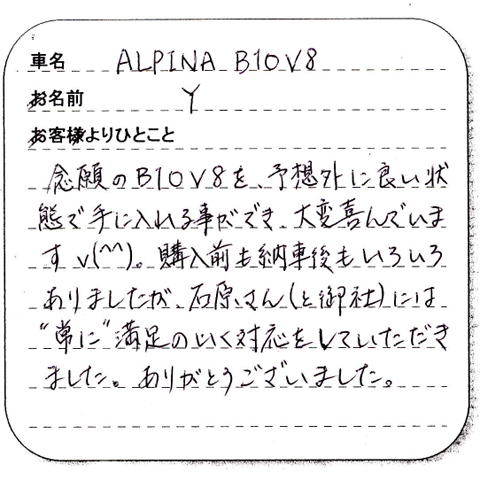 車名 ALPINA B10V8
お名前 Y
お客様よりひとこと
念願のB10V8を、予想外に良い状
態で手に入れる事ができ、大変喜んでいま
す v(^^)。購入前も納車後もいろいろ
ありましたが、石原さん(と御社)には
"常に"満足のいく対応をしていただき
ました。ありがとうございました。